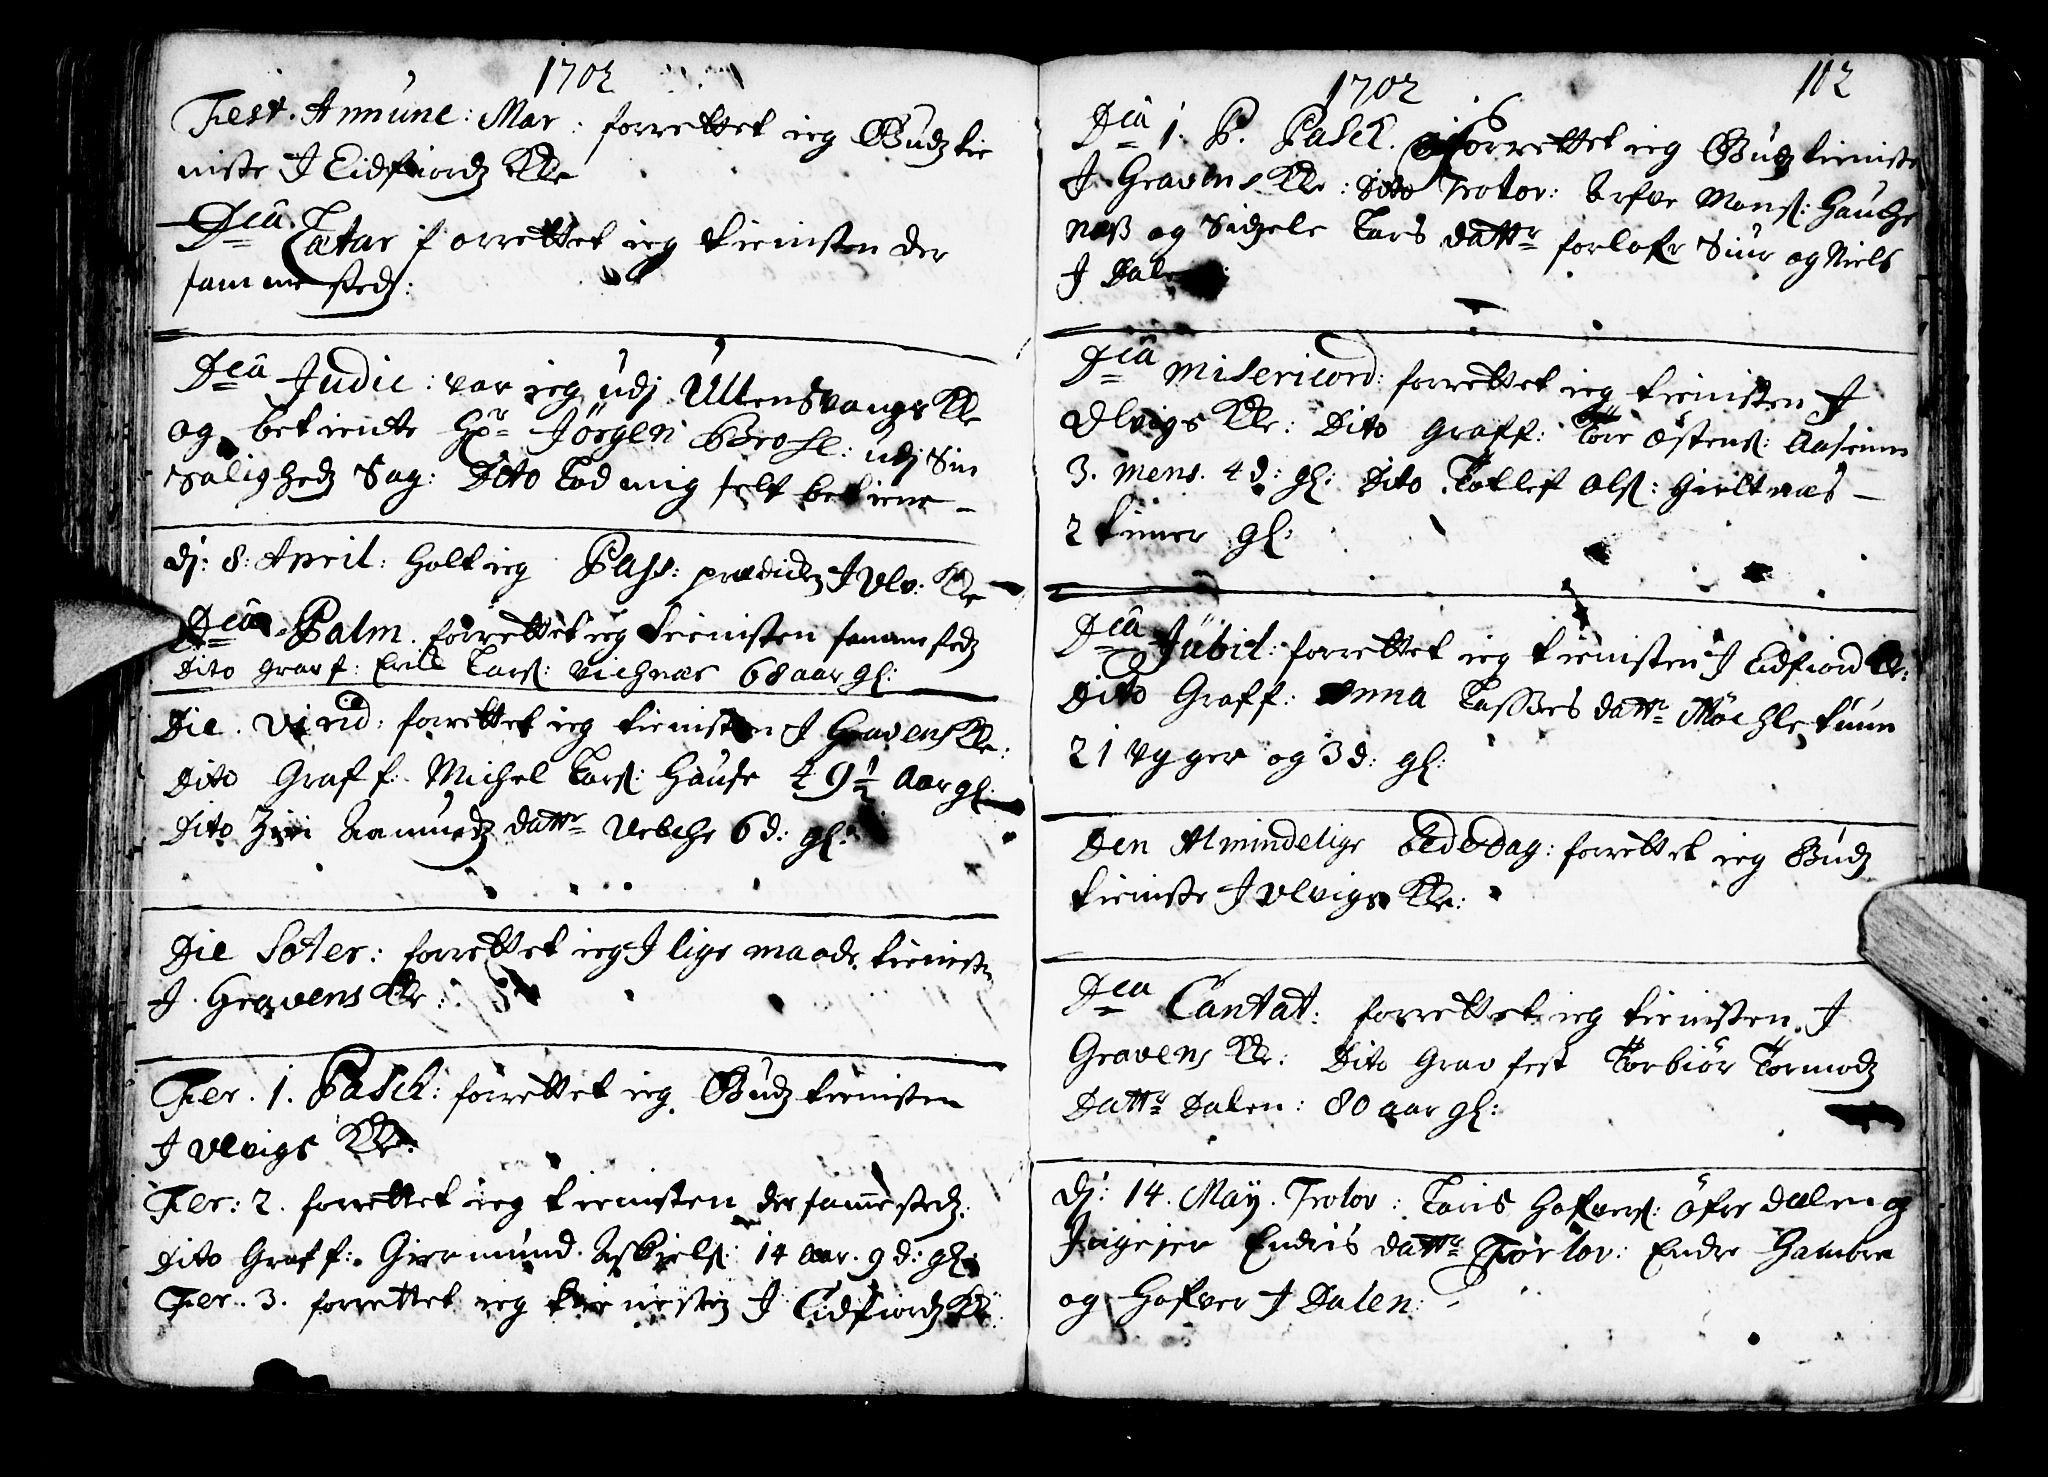 1702
Fest. Annunc: Mar: forrettet ieg Gudz tie
niste J Eidfiordz Kle
Dca Lætar forrettet ieg tienisten der
samme stedz:
Dca Judic: var ieg udj Ullensvangs Kle
og betiente Hr Jörgen udj Sin
Salighedz Sag: Dito Lod mig self betiene
Dj: 8: April: holt ieg Pass: prædicken J Ulv: Kle
Dca Palm. forrettet ieg tienisten samme stedz
Dito Graff: Erick Larss: Vichnæs 68 aar gl:
Die. Virid: forrettet ieg tienisten J Gravens Kle:
Dito Graff: Michel Larss: Hause 49½ Aar gl:
Dito Aamundz dattr 6 d: gl:
Die Soter: forrettet ieg J lige maade tienisten
J Gravens Kle:
Fer. 1. Pasch: forrettet ieg Gudz tienisten
J Ulvigs Kle:
Fer: 2. forrettet ieg tienisten der samme stedz:
Dito Graff: Giermund Askiels: 14 Aar. 9 d: gl:
Fer. 3. forrettet ieg tienisten J Eidfiordz Kle:
1702 112
Dca 1. P. Pasch. forrettet ieg Gudz tieniste
J Gravens Kle: Dito Trolov: Mons:
næss og Sidzele Lars dattr forlofr Siur og Niels
J Dalen:
Dca Misericord: forrettet ieg tienisten J
Ulvigs Kle: Dito Graff: Tore Östens:
3. mens. 4 d: gl: Dito Tollef Ols: Hieltnæs
2 timer gl:
Dca Jubil: forrettet ieg tienisten J Eidfiord Kle:
Dito Graff: Anna Lasses dattr Möchletuun
21 Uger og 3 d: gl:
Den Almindelige Bededag: forrettet ieg Gudz
tieniste J Ulvigs Kle:
Dca Cantat: forrettet ieg tienisten J
Gravens Kle: Dito Grav fest Torbiör Tormodz
Dattr Dalen: 80 aar gl:
Dj: 14. May. Trolov: Laris Hafvers: öfre Dalen og
Jngejer Endris dattr Forlov: Endre Hambre
og Hafver J Dalen: